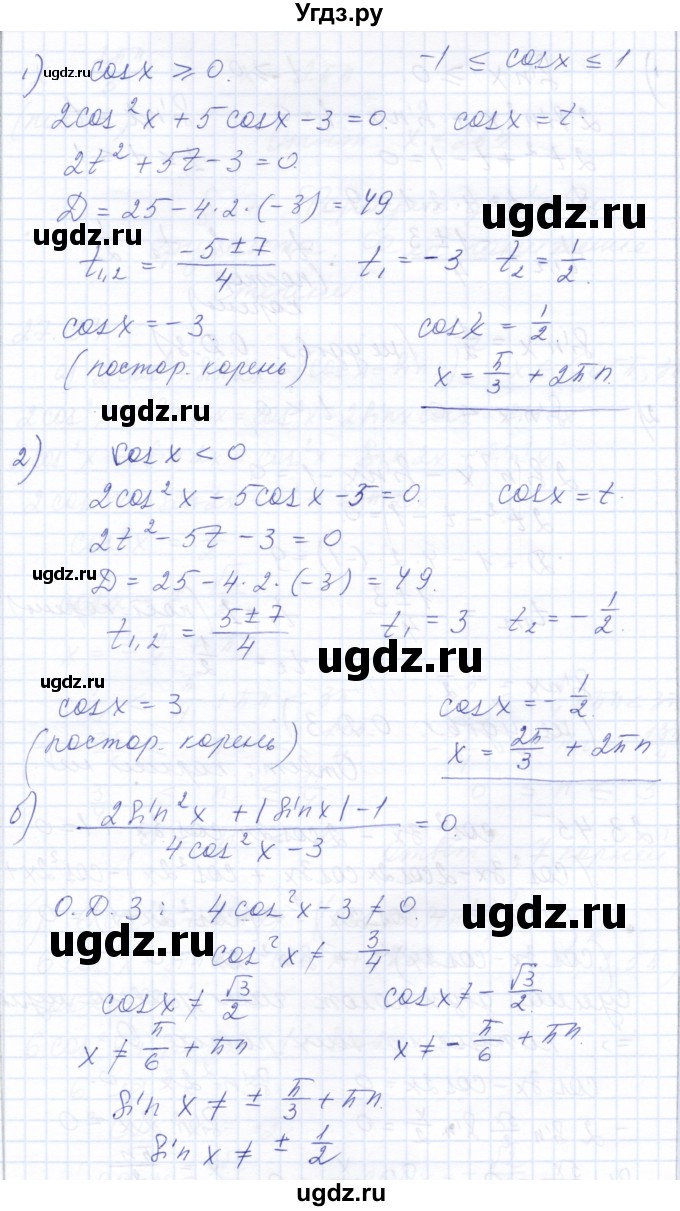 Угдз.ру
1) cos x ⩾ 0. -1 ≤ cos x ≤ 1
ugdz.ru
2cos²x + 5cosx - 3 = 0. cosx = t.
2t² + 5t - 3 = 0.
Д = 25 - 4·2·(-3) = 49
ugdz.ru
ugdz.ru
t₁,₂ = (-5 ± 7)/4 t₁ = -3 t₂ = 1/2.
cosx = -3. cosx = 1/2.
(постор. корень) x = π/3 + 2πn.
ugdz.ru
2) cosx < 0
2cos²x - 5cosx - 3 = 0. cosx = t.
2t² - 5t - 3 = 0
ugdz.ru
Д = 25 - 4·2·(-3) = 49.
t₁,₂ = (5 ± 7)/4 t₁ = 3 t₂ = -1/2.
ugdz.ru
ugdz.ru
cosx = 3 cosx = -1/2.
(постор. корень) x = 2π/3 + 2πn
б) (2sin²x + |sinx| - 1)/(4cos²x - 3) = 0.
О.Д.З: 4cos²x - 3 ≠ 0.
ugdz.ru
ugdz.ru
cos²x ≠ 3/4
cosx ≠ √3/2 cosx ≠ -√3/2.
x ≠ π/6 + πn x ≠ -π/6 + πn.
sin x ≠ ± π/3 + πn.
sin x ≠ ± 1/2
ugdz.ru
ugdz.ru